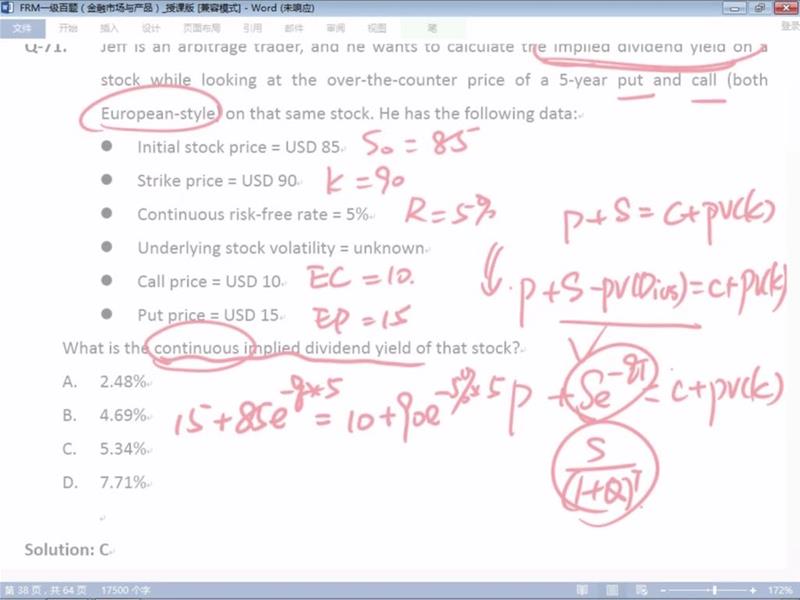 FRM一级百题（金融市场与产品）_授课版 [兼容模式] - Word (未响应)
文件 开始 插入 设计 页面布局 引用 邮件 审阅 视图 笔 登录
Q-71. Jeff is an arbitrage trader, and he wants to calculate the implied dividend yield on a
stock while looking at the over-the-counter price of a 5-year put and call (both
European-style) on that same stock. He has the following data:
● Initial stock price = USD 85 S₀ = 85
● Strike price = USD 90 K = 90
● Continuous risk-free rate = 5% R = 5% p + S = C + pv(k)
● Underlying stock volatility = unknown
● Call price = USD 10 EC = 10. p + S - pv(Divs) = c + pv(k)
● Put price = USD 15 EP = 15
What is the continuous implied dividend yield of that stock?
A. 2.48%
B. 4.69% 15 + 85e^(-q*5) = 10 + 90e^(-5%*5) p + Se^(-qT) = c + pv(k)
C. 5.34% S
D. 7.71% (1+Q)^T
Solution: C
第 38 页，共 64 页 17500 个字 172%